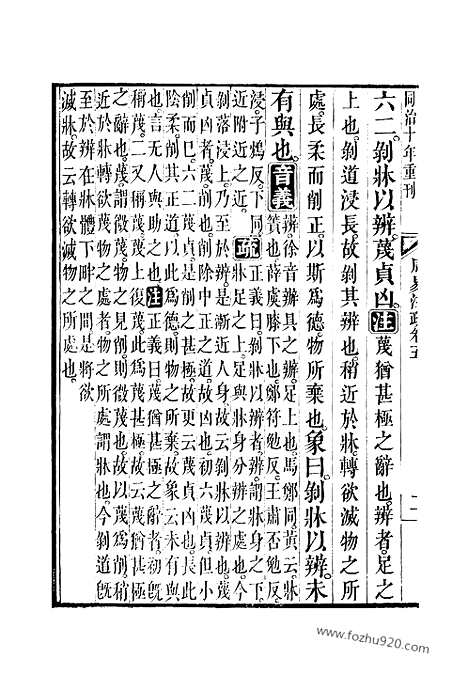 同治十年重刊
周易注疏卷五
六二。剝牀以辨。蔑貞凶。注蔑猶甚極之辭也。辨者。足之
上也。剝道浸長。故剝其辨也。稍近於牀。轉欲滅物之所
處。長柔而削正。以斯爲德。物所棄也。象曰。剝牀以辨。未
有與也。音義辨。徐音辦具之辦。足上也。馬鄭同。黃云。牀
簀也。薛虞。膝下也。鄭符勉反。王肅否勉反。
浸。子鴆反。下同。
近。附近之近。
疏正義曰。剝牀以辨者。辨。謂牀身之下。
牀足之上。足與牀身分辨之處也。今
剝落浸上。乃至於辨。是漸近人身。故云剝牀以辨也。蔑
貞凶者。蔑。削也。削除中正之道。故凶也。初六蔑貞。但小
削而已。六二蔑貞。是削之甚極。故更云蔑貞凶也。長此
陰柔。削其正道。以此爲德。則物之所棄。故象云未有與
也。言无人與助之也。注正義曰。蔑猶甚極之辭者。初旣
稱蔑。二又稱蔑。蔑上復蔑。此爲蔑甚極。故云蔑猶甚極
之辭也。蔑。謂微蔑。物之見削。則微蔑也。故以蔑爲削。稍
近於牀轉欲蔑物之處者。物之所處。謂牀也。今剝道旣
至於辨。在牀體下畔之間。是將欲
滅牀。故云轉欲滅物之所處也。
www.fozhu920.com